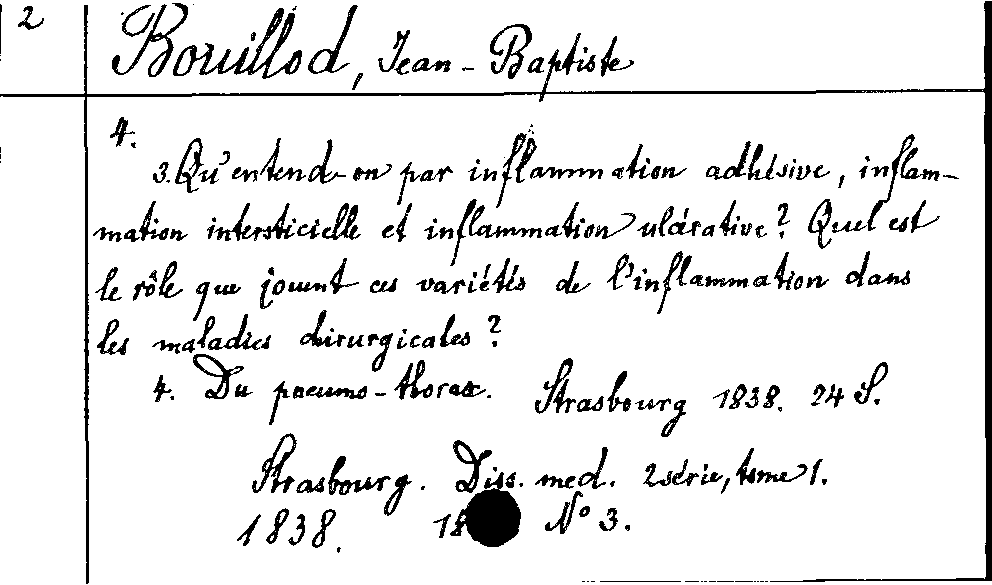 2
Bouillod, Jean-Baptiste
4.
3. Qu'entend-on par inflammation adhésive, inflam-
mation intersticielle et inflammation ulcérative? Quel est
le rôle que jouent ces variétés de l'inflammation dans
les maladies chirurgicales?
4. Du pneumo-thorax. Strasbourg 1838. 24 S.
Strasbourg. Diss. med. 2 série, tome 1.
1838. No 3.